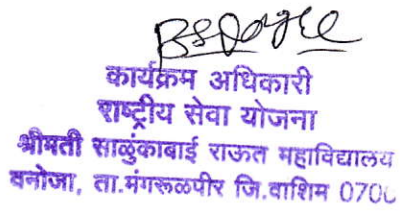 कार्यक्रम अधिकारी
राष्ट्रीय सेवा योजना
श्रीमती साळुंकाबाई राऊत महाविद्यालय
वनोजा, ता.मंगरूळपीर जि.वाशिम